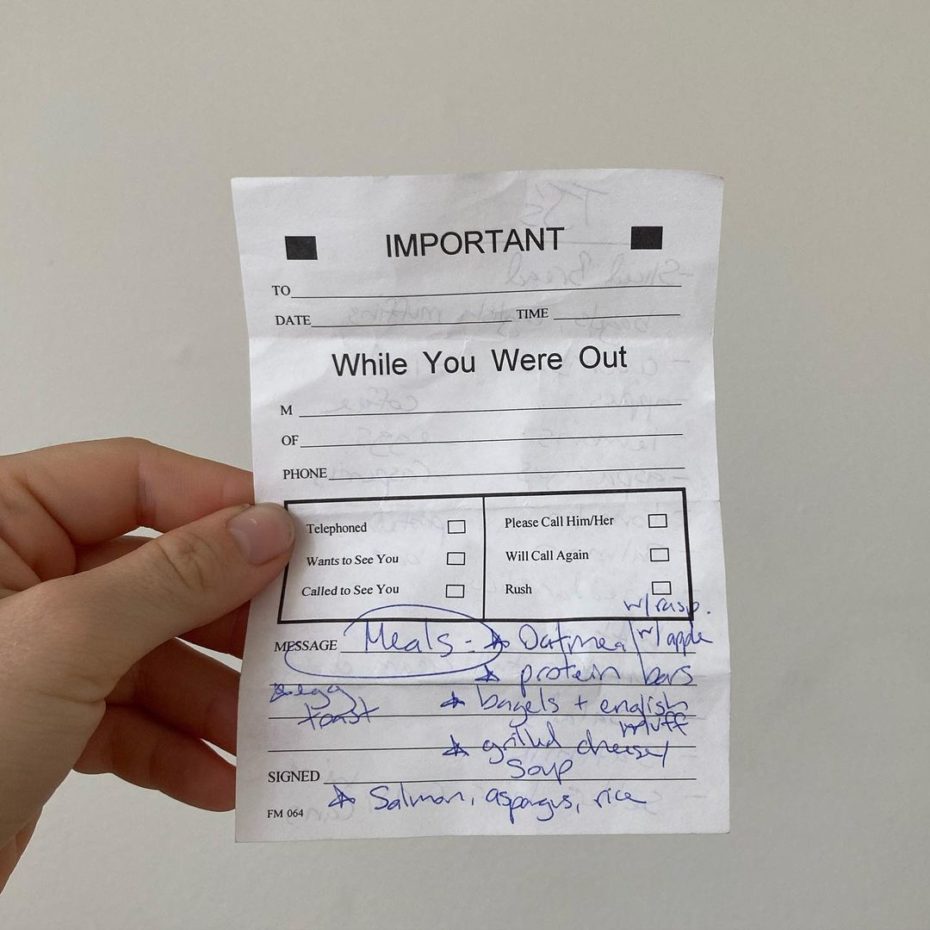 IMPORTANT
TO
DATE TIME
While You Were Out
M
OF
PHONE
Telephoned Please Call Him/Her
Wants to See You Will Call Again
Called to See You Rush
w/ rasp.
MESSAGE Meals - Oatmeal w/ apple
protein bars
egg bagels + english
toast muff
grilled cheese/
soup
SIGNED
Salmon, aspargus, rice
FM 064